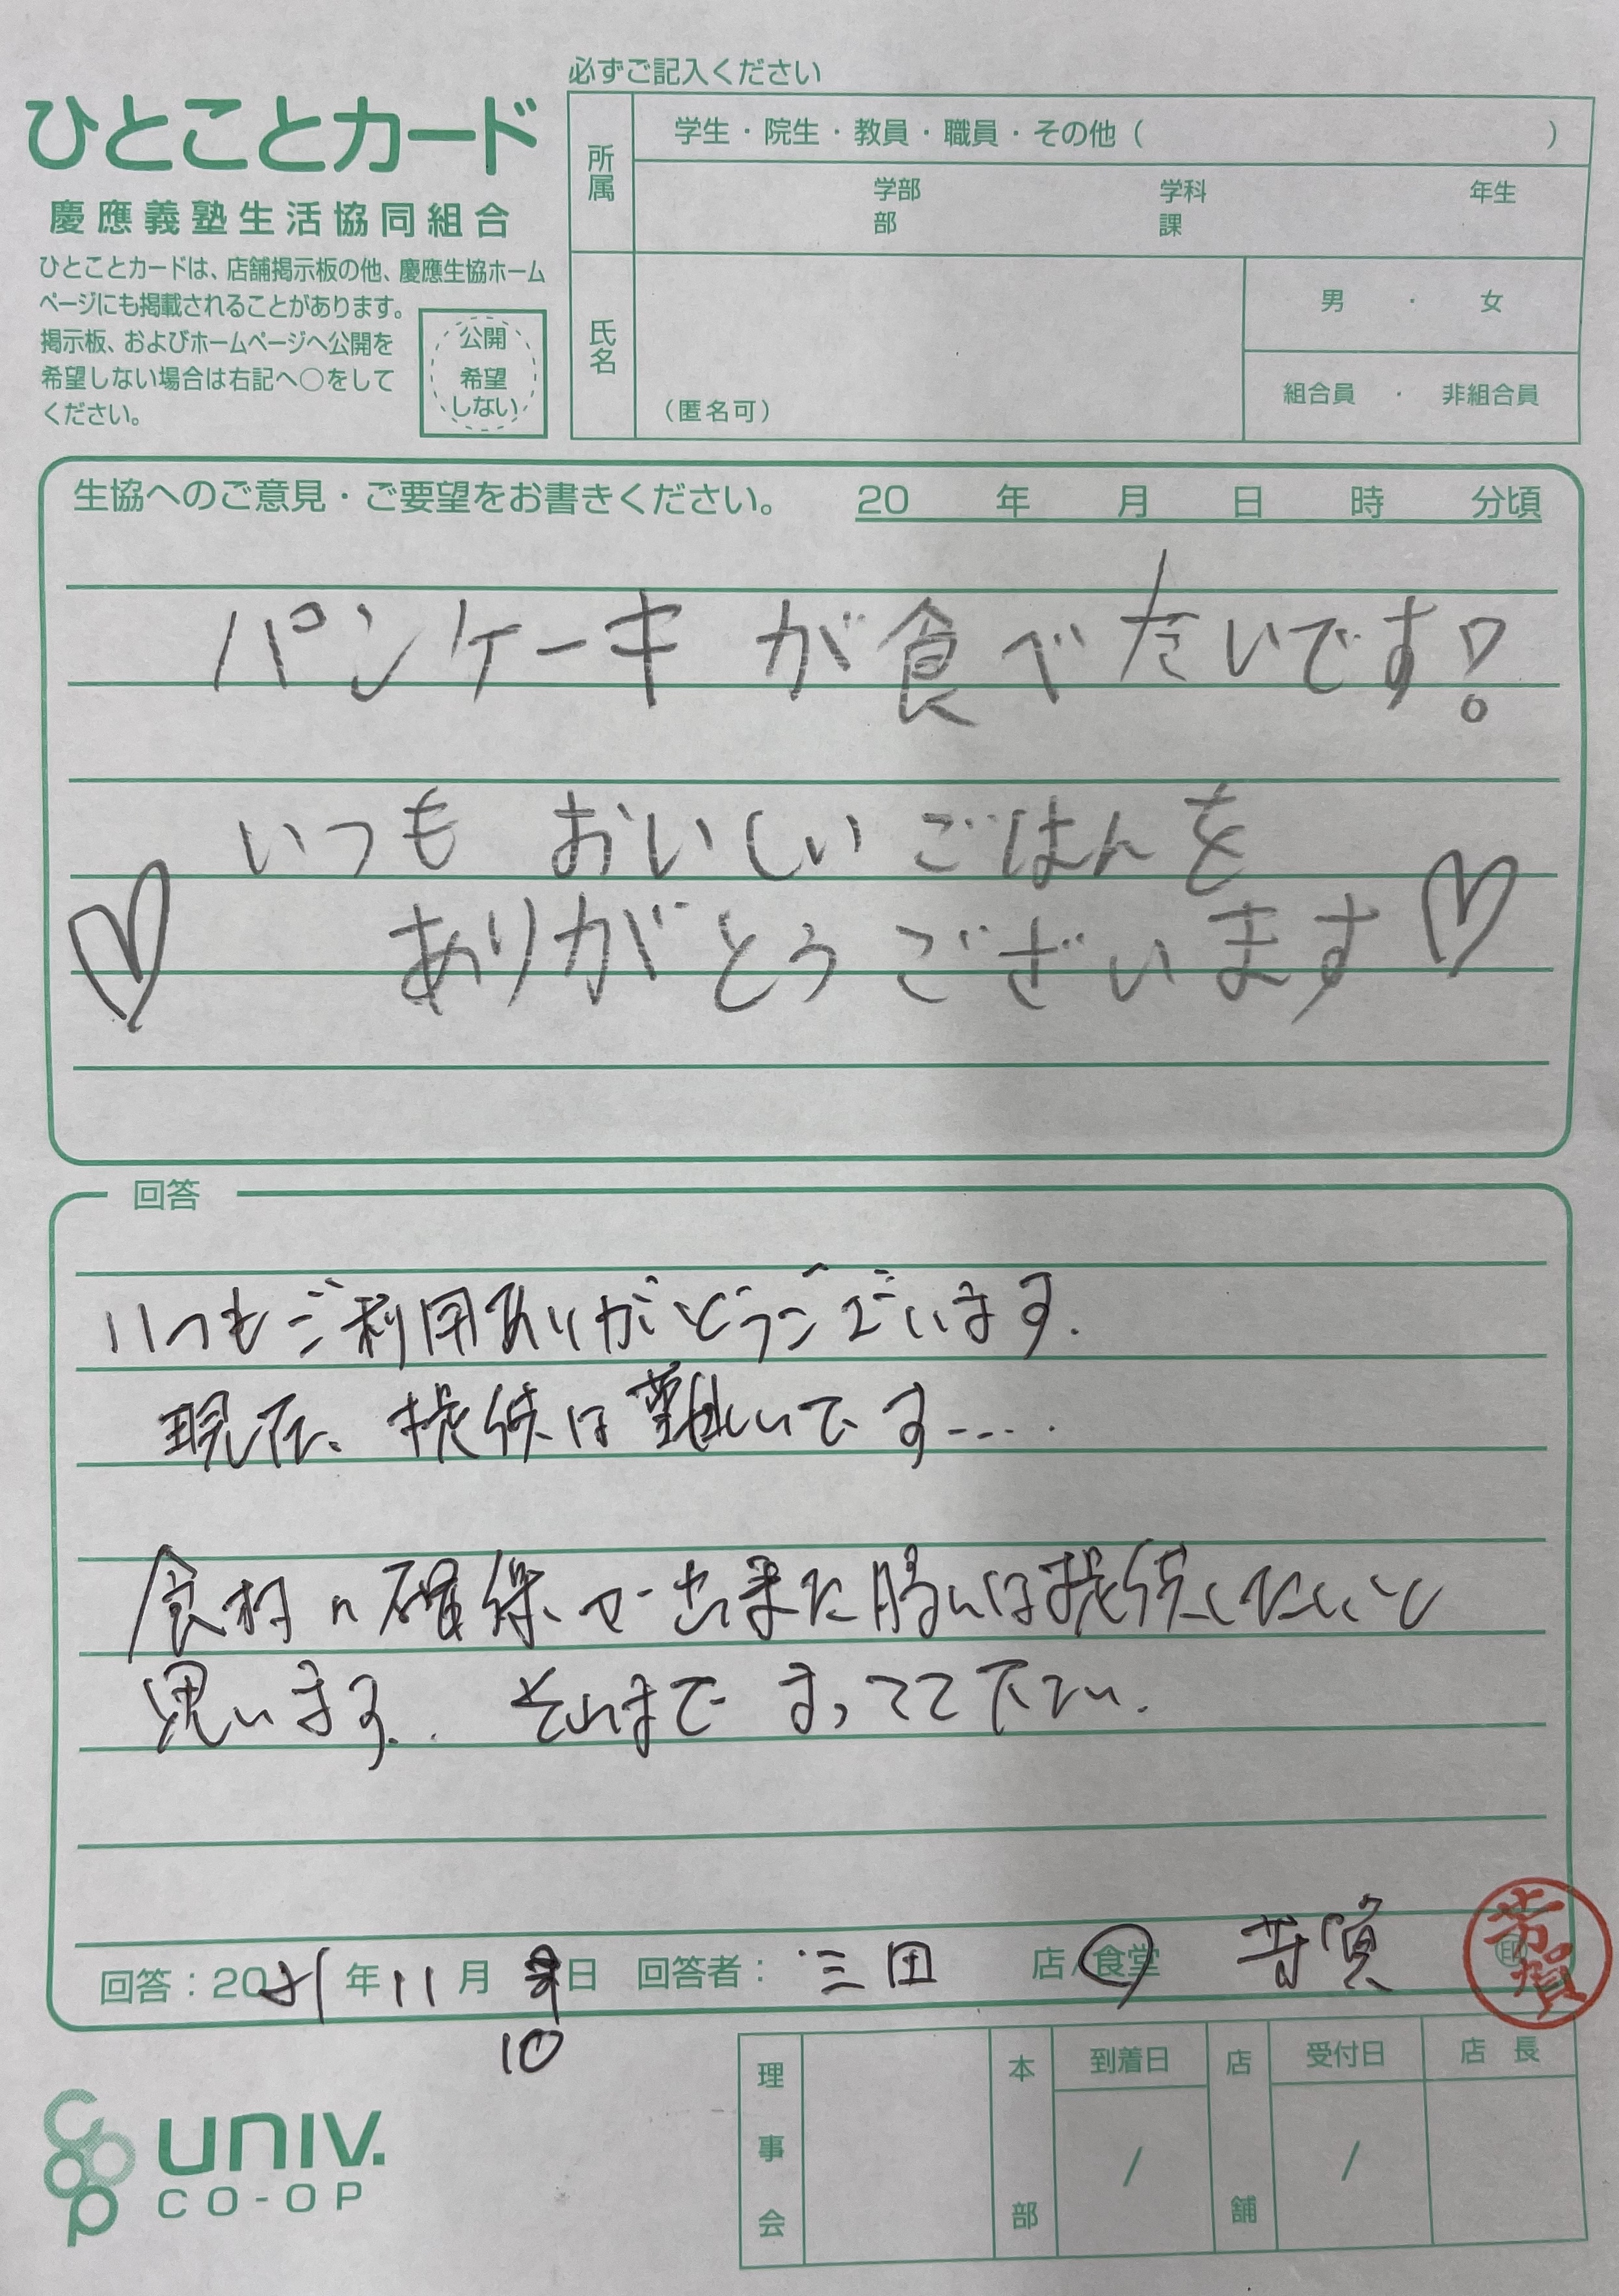 必ずご記入ください
ひとことカード
慶應義塾生活協同組合
ひとことカードは、店舗掲示板の他、慶應生協ホーム
ページにも掲載されることがあります。
掲示板、およびホームページへ公開を
希望しない場合は右記へ○をして
ください。
公開
希望
しない
所属
学生・院生・教員・職員・その他（ ）
学部 学科 年生
部 課
氏名
（匿名可）
男 ・ 女
組合員 ・ 非組合員
生協へのご意見・ご要望をお書きください。 20 年 月 日 時 分頃
パンケーキが食べたいです！
いつも おいしい ごはんを
♡ ありがとうございます♡
回答
いつもご利用ありがとうございます.
現在、提供は難しいです‥‥
食材の確保が出来た際には提供したいと
思います.. それまで まってて下さい.
回答：20 年 11 月 日 回答者： 三田 店/食堂
10
印
理事会
本部
到着日
/
店舗
受付日
/
店長
univ.
CO-OP